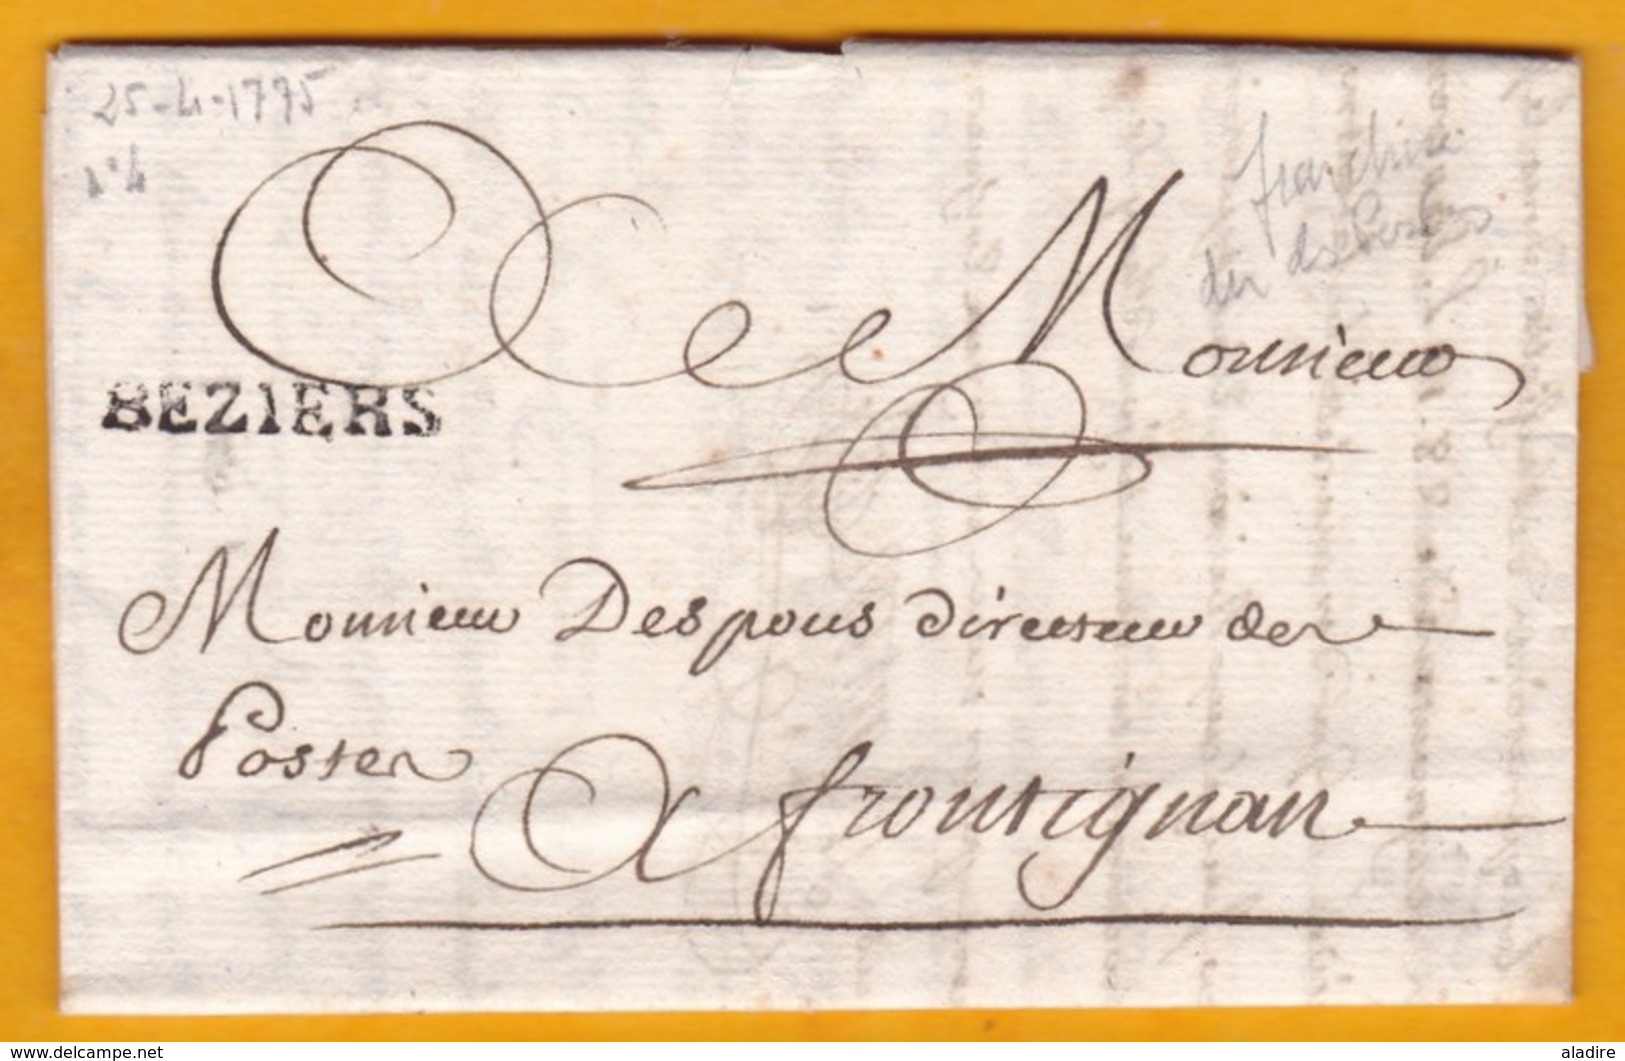 25-4-1775
n°4
franchise
dir des Postes
A Monsieur
BEZIERS
Monsieur Despous directeur des
Postes
A frontignan
delcampe.net
aladire